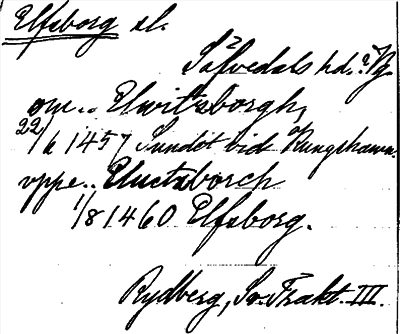 Elfsborg sl.
Säfvedals hd. Vg.
om.. Elwitzborgh,
22/6 1457 Sundet vid Kungshamn.
uppe.. Elustzborch
1/8 1460 Elfsborg.
Rydberg, Sv. Trakt. III.